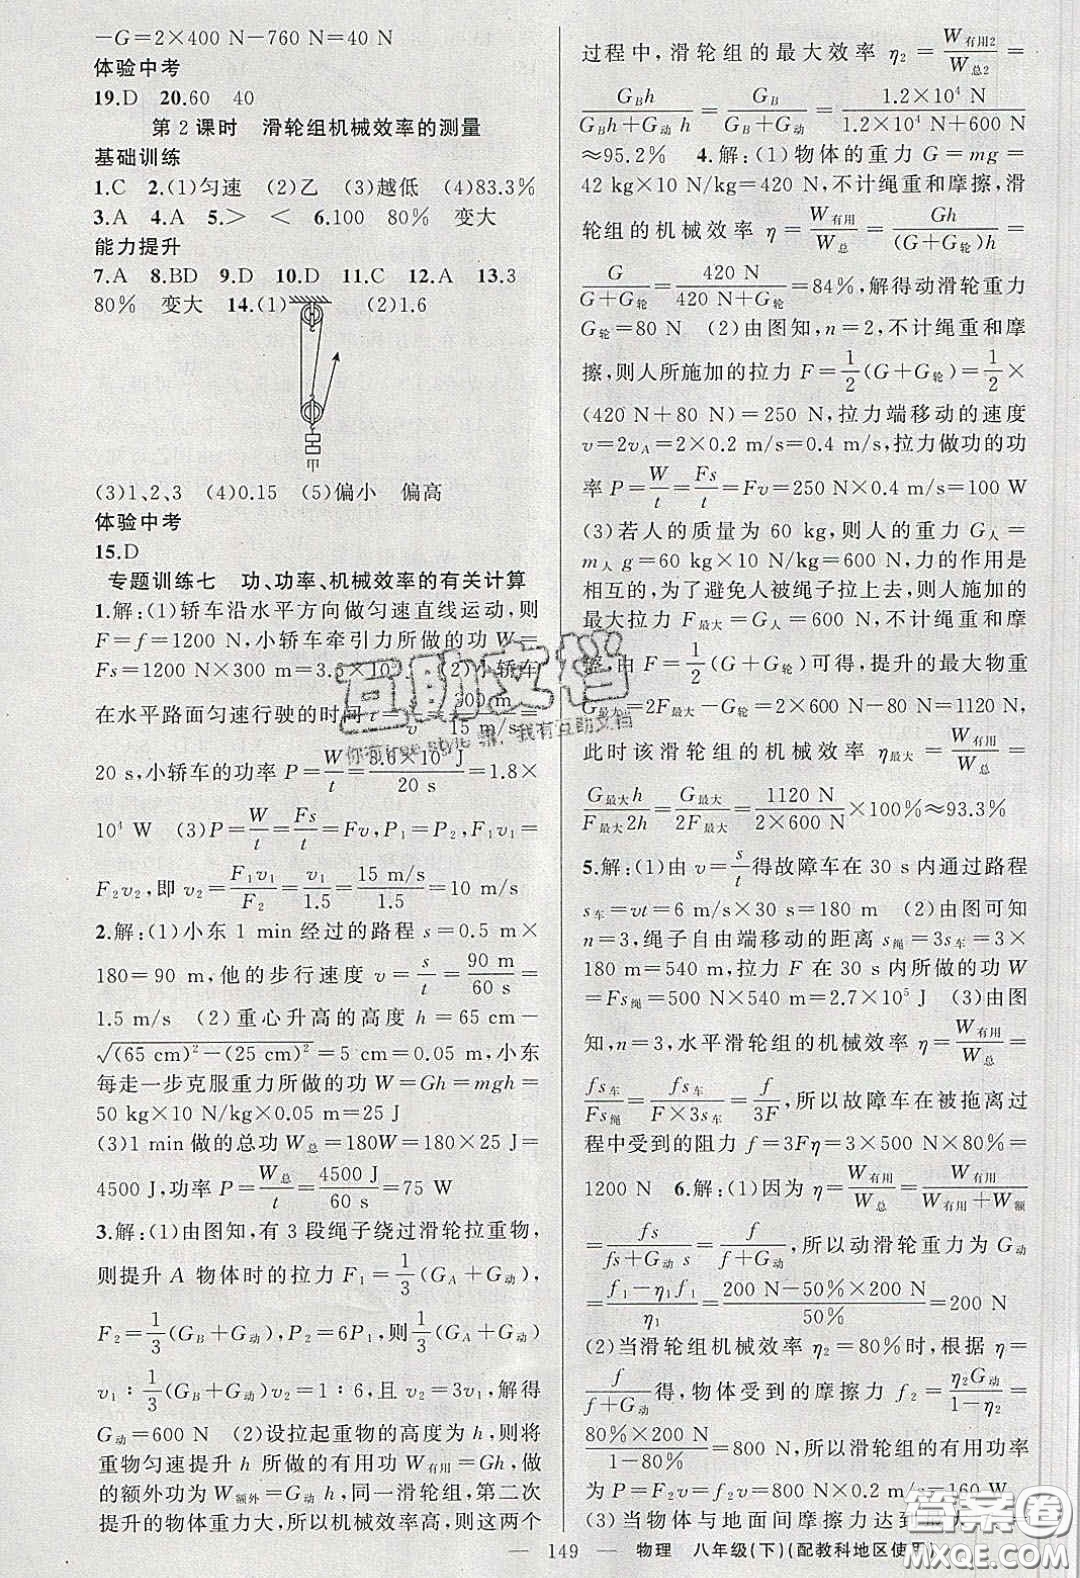 －G＝2×400 N－760 N＝40 N
体验中考
19.D　20.60　40
第 2 课时　滑轮组机械效率的测量
基础训练
1.C　2.(1)匀速　(2)乙　(3)越低　(4)83.3%
3.A　4.A　5.＞　＜　6.100　80%　变大
能力提升
7.A　8.BD　9.D　10.D　11.C　12.A　13.3
80%　变大　14.(1)　(2)1.6
(3)1、2、3　(4)0.15　(5)偏小　偏高
体验中考
15.D
专题训练七　功、功率、机械效率的有关计算
1.解:(1)轿车沿水平方向做匀速直线运动,则
F＝f＝1200 N,小轿车牵引力所做的功 W＝
Fs＝1200 N×300 m＝3.6×10 (2)小轿车
在水平路面匀速行驶的时间 t＝s/v＝300 m/15 m/s＝
20 s,小轿车的功率 P＝W/t＝3.6×10⁵ J/20 s＝1.8×
10⁴ W　(3)P＝W/t＝Fs/t＝Fv,P₁＝P₂,F₁v₁＝
F₂v₂,即 v₂＝F₁v₁/F₂＝v₁/1.5＝15 m/s/1.5＝10 m/s
2.解:(1)小东 1 min 经过的路程 s＝0.5 m×
180＝90 m,他的步行速度 v＝s/t＝90 m/60 s＝
1.5 m/s　(2)重心升高的高度 h＝65 cm－
√(65 cm)²－(25 cm)²＝5 cm＝0.05 m,小东
每走一步克服重力所做的功 W＝Gh＝mgh＝
50 kg×10 N/kg×0.05 m＝25 J
(3)1 min 做的总功 W总＝180W＝180×25 J＝
4500 J,功率 P＝W总/t＝4500 J/60 s＝75 W
3.解:(1)由图知,有 3 段绳子绕过滑轮拉重物,
则提升 A 物体时的拉力 F₁＝1/3(G_A＋G动),
F₂＝1/3(G_B＋G动),P₂＝6P₁,则1/3(G_A＋G动)
v₁∶1/3(G_B＋G动)v₂＝1∶6,且 v₂＝3v₁,解得
G动＝600 N　(2)设拉起重物的高度为 h,则将
重物匀速提升 h 所做的有用功 W有用＝Gh,做
的额外功为 W额外＝G动 h,同一滑轮组,第二次
提升的物体重力大,所以机械效率高,则这两个
过程中,滑轮组的最大效率 η₂＝W有用2/W总2＝
G_Bh/G_Bh＋G动 h＝G_B/G_B＋G动＝1.2×10⁴ N/1.2×10⁴ N＋600 N
≈95.2%　4.解:(1)物体的重力 G＝mg＝
42 kg×10 N/kg＝420 N,不计绳重和摩擦,滑
轮组的机械效率 η＝W有用/W总＝Gh/(G＋G轮)h＝
G/G＋G轮＝420 N/420 N＋G轮＝84%,解得动滑轮重力
G轮＝80 N　(2)由图知,n＝2,不计绳重和摩
擦,则人所施加的拉力 F＝1/2(G＋G轮)＝1/2×
(420 N＋80 N)＝250 N,拉力端移动的速度
v＝2v_A＝2×0.2 m/s＝0.4 m/s,拉力做功的功
率 P＝W/t＝Fs/t＝Fv＝250 N×0.4 m/s＝100 W
(3)若人的质量为 60 kg,则人的重力 G人＝
m人 g＝60 kg×10 N/kg＝600 N,力的作用是
相互的,为了避免人被绳子拉上去,则所施加的
最大拉力 F最大＝G人＝600 N,不计绳重和摩
擦,由 F＝1/2(G＋G轮)可得,提升的最大物重
G最大＝2F最大－G轮＝2×600 N－80 N＝1120 N,
此时该滑轮组的机械效率 η最大＝W有用/W总＝
G最大h/F最大2h＝G最大/2F最大＝1120 N/2×600 N×100%≈93.3%
5.解:(1)由 v＝s/t得故障车在 30 s 内通过路程
s车＝vt＝6 m/s×30 s＝180 m　(2)由图可知
n＝3,绳子自由端移动的距离 s绳＝3s车＝3×
180 m＝540 m,拉力 F 在 30 s 内所做的功 W
＝Fs绳＝500 N×540 m＝2.7×10⁵ J　(3)由图
知,n＝3,水平滑轮组的机械效率 η＝W有用/W总＝
fs车/Fs绳＝fs车/F×3s车＝f/3F,所以故障车在被拖离过
程中受到的阻力 f＝3Fη＝3×500 N×80%＝
1200 N　6.解:(1)因为 η＝W有用/W总＝W有用/W有用＋W额
＝fs/fs＋G动 s＝f/f＋G动,所以动滑轮重力为 G动
＝f₁－η₁f₁/η₁＝200 N－50%×200 N/50%＝200 N
(2)当滑轮组机械效率 η₂＝80%时,根据 η＝
f/f＋G动得,物体受到的摩擦力 f₂＝η₂G动/1－η₂＝
80%×200 N/1－80%＝800 N,所以滑轮组的有用功率
为 P＝F₂v＝f₂v＝800 N×0.2 m/s＝160 W
(3)当物体与地面间摩擦力达到最大
— 149 —　物理　八年级(下)(配教科地区使用)
互助文档
你有free style 嘿,我有互助文档
答案圈
MXQE.COM